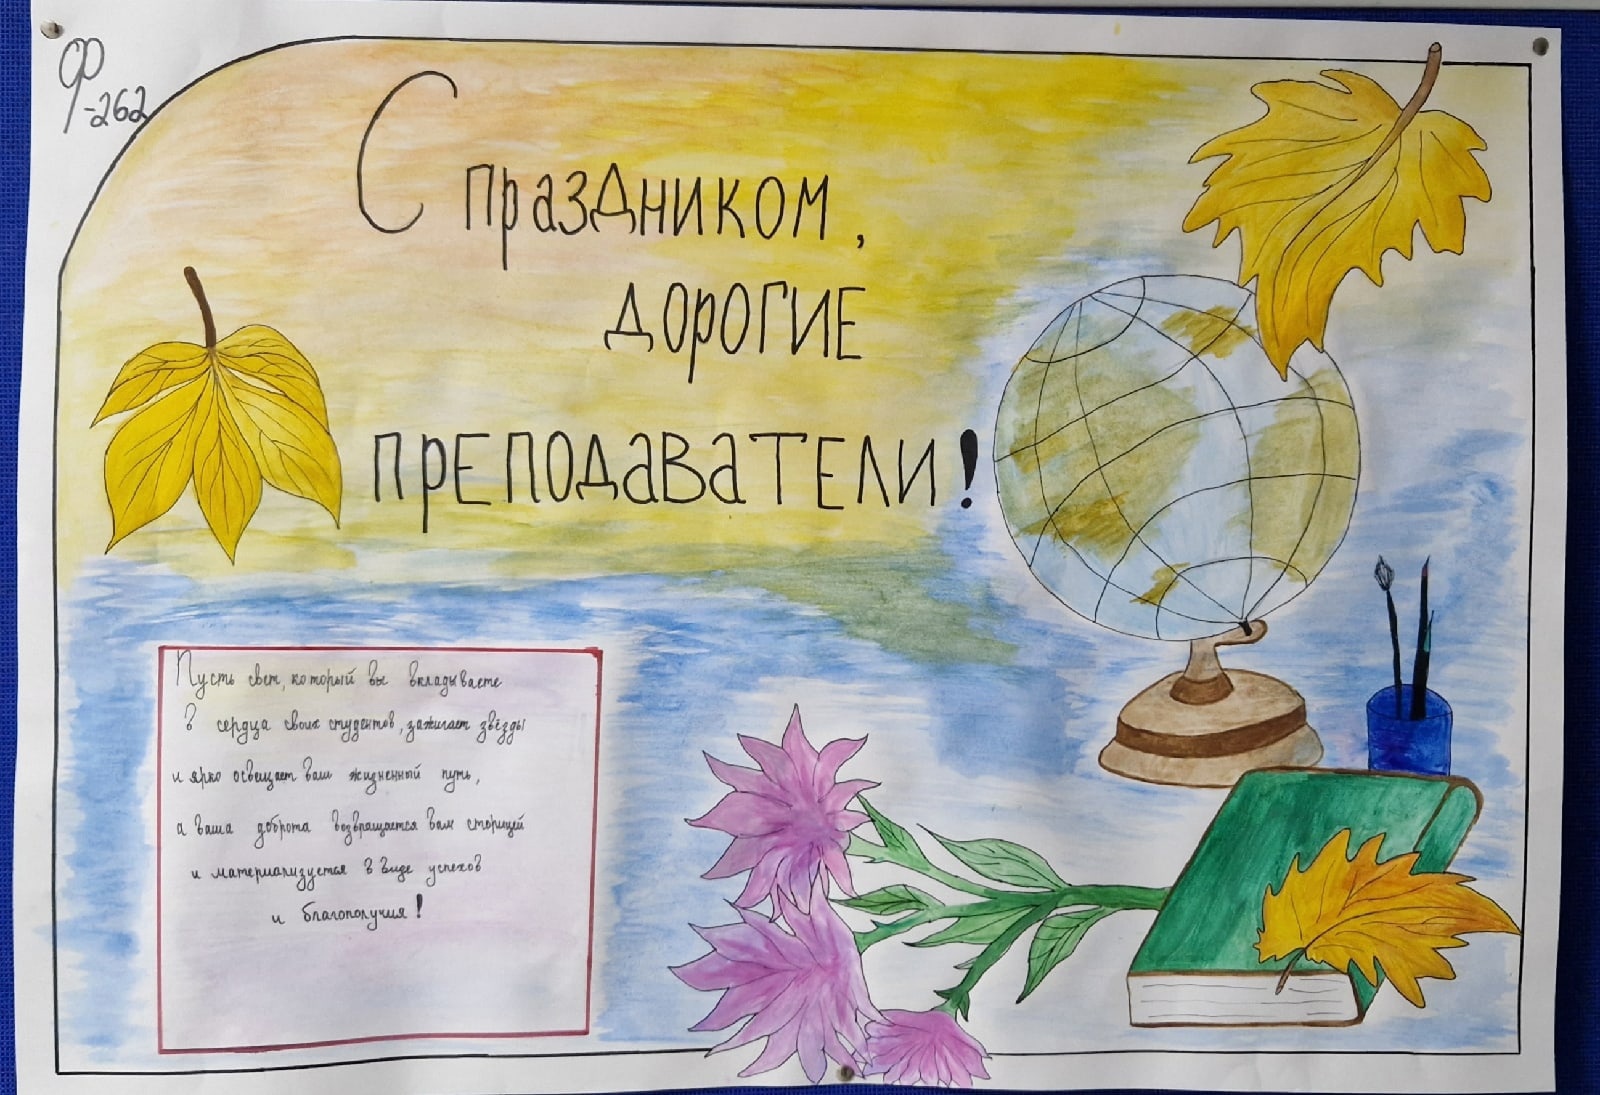 Ф
-262
С праздником,
дорогие
преподаватели!
Пусть свет, который вы вкладываете
в сердца своих студентов, зажигает звёзды
и ярко освещает ваш жизненный путь,
а ваша доброта возвращается вам сторицей
и материализуется в виде успехов
и благополучия!